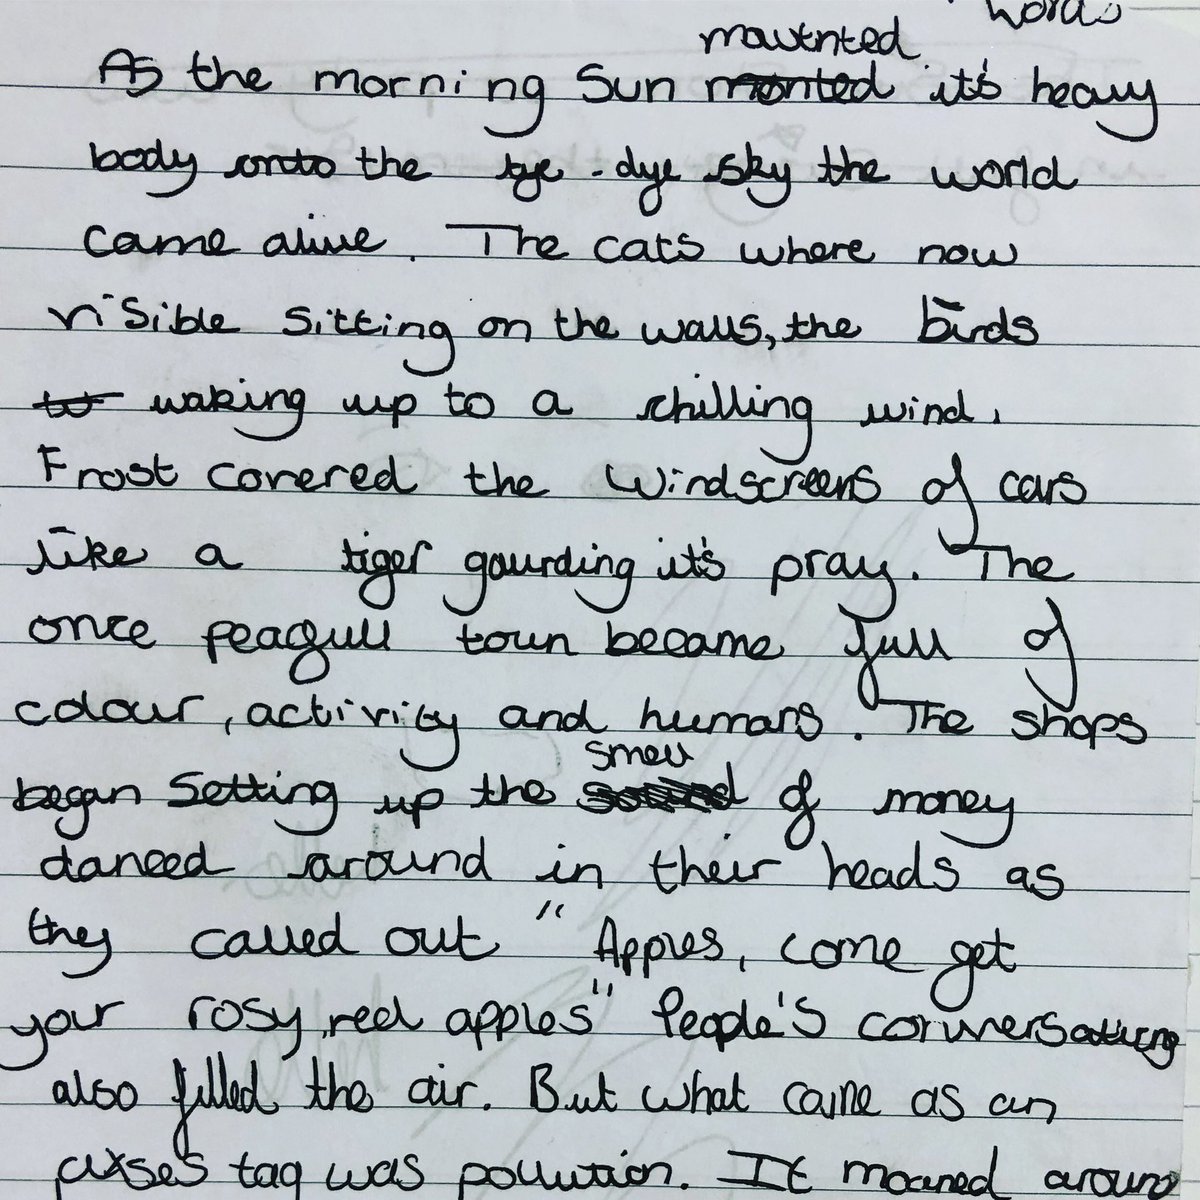 words
mountnted
As the morning Sun monted it's heavy
body onto the tye-dye sky the world
came alive. The cats where now
visible sitting on the walls, the birds
to waking up to a chilling wind.
Frost covered the windscreens of cars
like a tiger gaurding it's pray. The
once peagull town became full of
colour, activity and humans. The shops
smell
began setting up the sound of money
danced around in their heads as
they called out "Apples, come get
your rosy, red apples" People's conversations
also filled the air. But what came as an
tag was pollution. It moaned around